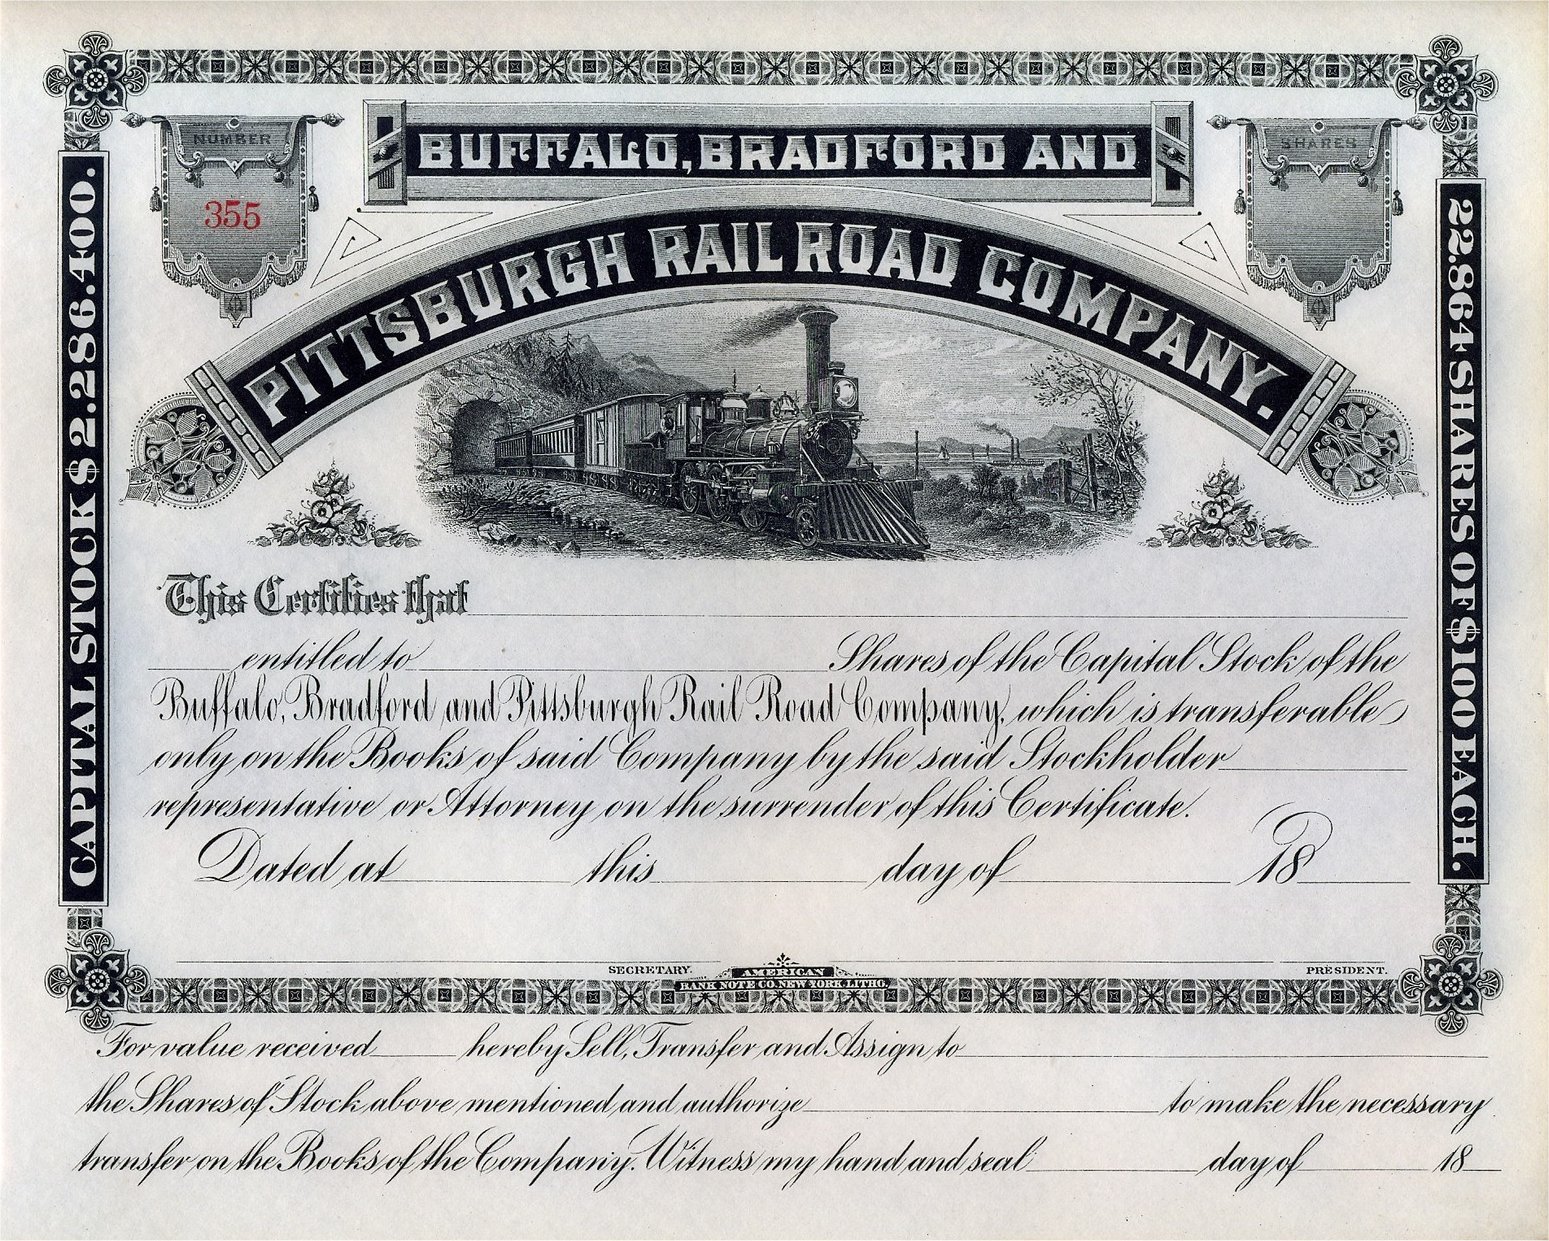 NUMBER
355
BUFFALO, BRADFORD AND
SHARES
PITTSBURGH RAIL ROAD COMPANY.
CAPITAL STOCK $ 2.286.400.
22.864 SHARES OF $100 EACH.
This Certifies that
entitled to Shares of the Capital Stock of the
Buffalo, Bradford and Pittsburgh Rail Road Company, which is transferable
only on the Books of said Company by the said Stockholder
representative or Attorney on the surrender of this Certificate.
Dated at this day of 18
SECRETARY.
PRESIDENT.
AMERICAN
BANK NOTE CO. NEW YORK. LITHO.
For value received hereby Sell, Transfer and Assign to
the Shares of Stock above mentioned and authorize to make the necessary
transfer on the Books of the Company. Witness my hand and seal day of 18